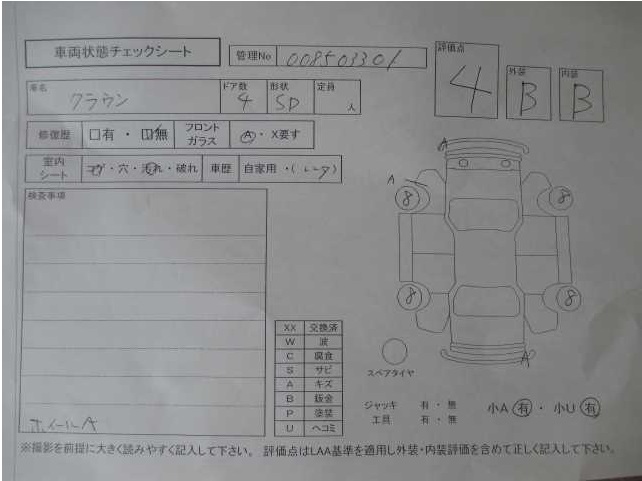 車両状態チェックシート
管理No 008503301
評価点 4
外装 B
内装 B
車名 クラウン
ドア数 4
形状 SD
定員 人
修復歴 □有・□無
フロントガラス A・X要す
室内シート コゲ・穴・汚れ・破れ
車歴 自家用・(レンタ)
検査事項
ホイールA
A
A
8
8
8
8
A
スペアタイヤ
XX 交換済
W 波
C 腐食
S サビ
A キズ
B 鈑金
P 塗装
U ヘコミ
ジャッキ 有・無
工具 有・無
小A 有・小U 有
※撮影を前提に大きく読みやすく記入して下さい。 評価点はLAA基準を適用し外装・内装評価を含めて正しく記入して下さい。